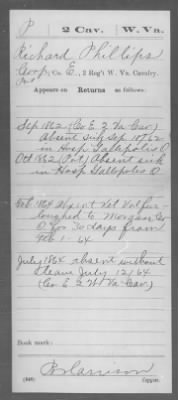 P 2 Cav. W. Va.
Richard Phillips
Corp, Co. E, 2 Reg't W. Va. Cavalry.
Pvt
Appears on Returns as follows:
Sep 1862 (Co E 2 Va Cav)
Absent sick Sep 1862
in Hosp Gallipolis O
Oct 1862 (Pvt) Absent sick
in Hosp Gallipolis O
Feb 1864 Absent Vet Vol fur-
loughed to Morgan Co
O for 30 days from
Feb 1-64
July 1864 absent without
leave July 12/64
(Co E 2 W Va Cav)
Book mark:
Copyist.